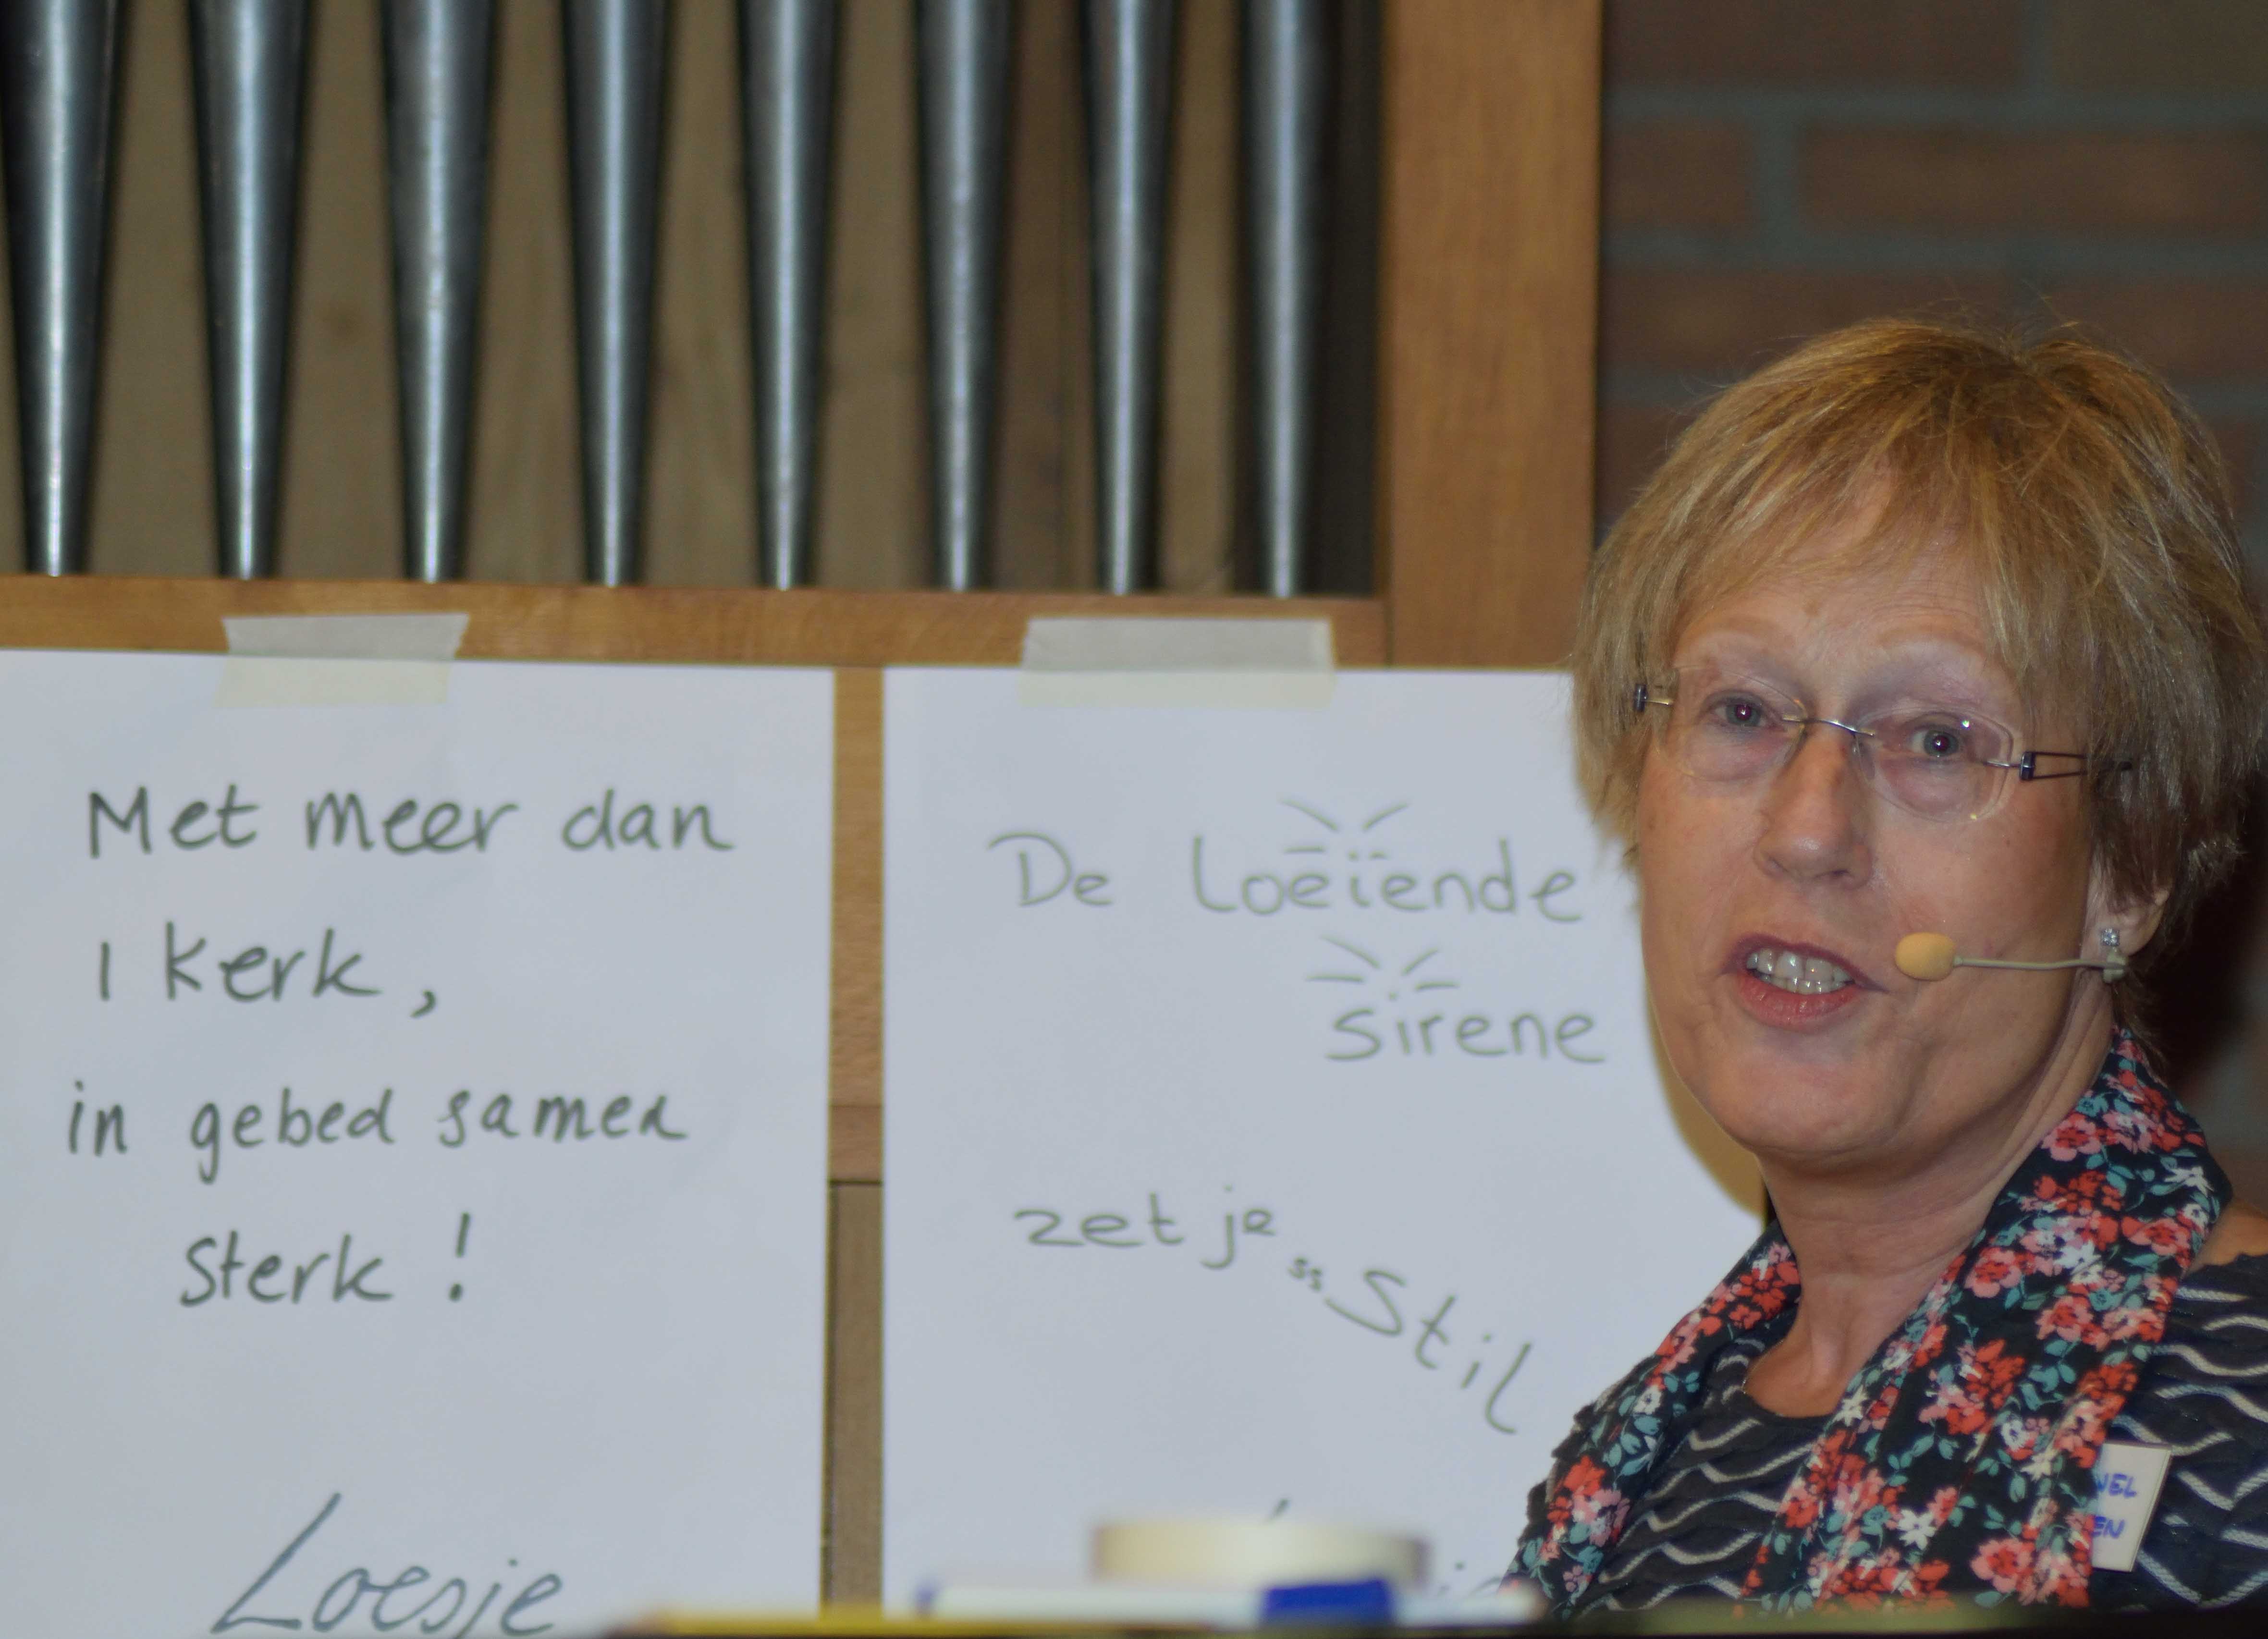 Met meer dan
1 kerk,
in gebed samen
Sterk!
Loesje
De Loeiende
sirene
zet je
ss Stil